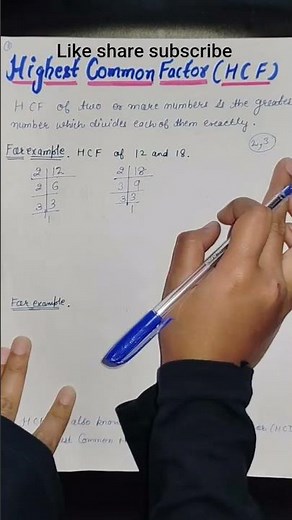 Like share subscribe
Highest Common Factor (HCF)
HCF of two or more numbers is the greates
number which divides each of them exactly.
2,3
For example. HCF of 12 and 18.
2 12 2 18
2 6 3 9
3 3 3 3
1 1
For example.
HCF also know
Common